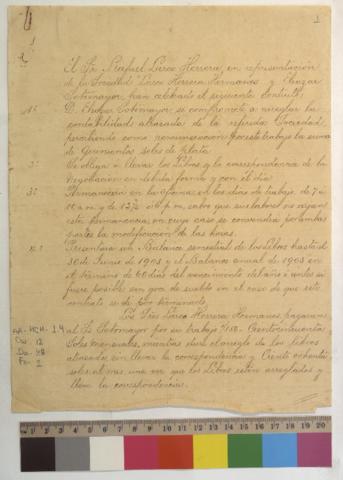 1
El Sr. Rafael Larco Herrera, en representación
de la Sociedad Larco Herrera Hermanos y Eleazar
Sotomayor, han celebrado el siguiente contrato:
1º D. Eleazar Sotomayor se compromete a arreglar la
contabilidad atrasada de la referida Sociedad,
percibiendo como remuneración por este trabajo la suma
de Quinientos soles de plata.
2º Se obliga a llevar los Libros y la correspondencia de la
Negociación en debida forma y con el día
3º Permanecerá en la oficina en los días de trabajo, de 7 a
10 a m y de 12½ a 6 p m, salvo que sus labores no exijan
esta permanencia, en cuyo caso se convendrá por ambas
partes la modificación de las horas.
4º Presentará un Balance semestral de los Libros hasta el
30 de Junio de 1903 y el Balance anual de 1903 en
el término de 60 días del vencimiento del año ó antes si
fuere posible sin goce de sueldo en el caso de que este
contrato se dé por terminado.
Los Sres Larco Herrera Hermanos pagarán
al Sr Sotomayor por su trabajo S/ 150. Ciento cincuenta
Soles mensuales, mientras dure el arreglo de los libros
atrasados, sin llevar la correspondencia y Ciento ochenta
soles al mes una vez que los Libros estén arreglados y
lleve la correspondencia.
1.4
Do. 48
Fo. 1
1 2 3 4 5 6 7 8 9 10 11 12 13 14 15 16 17 18 19 20